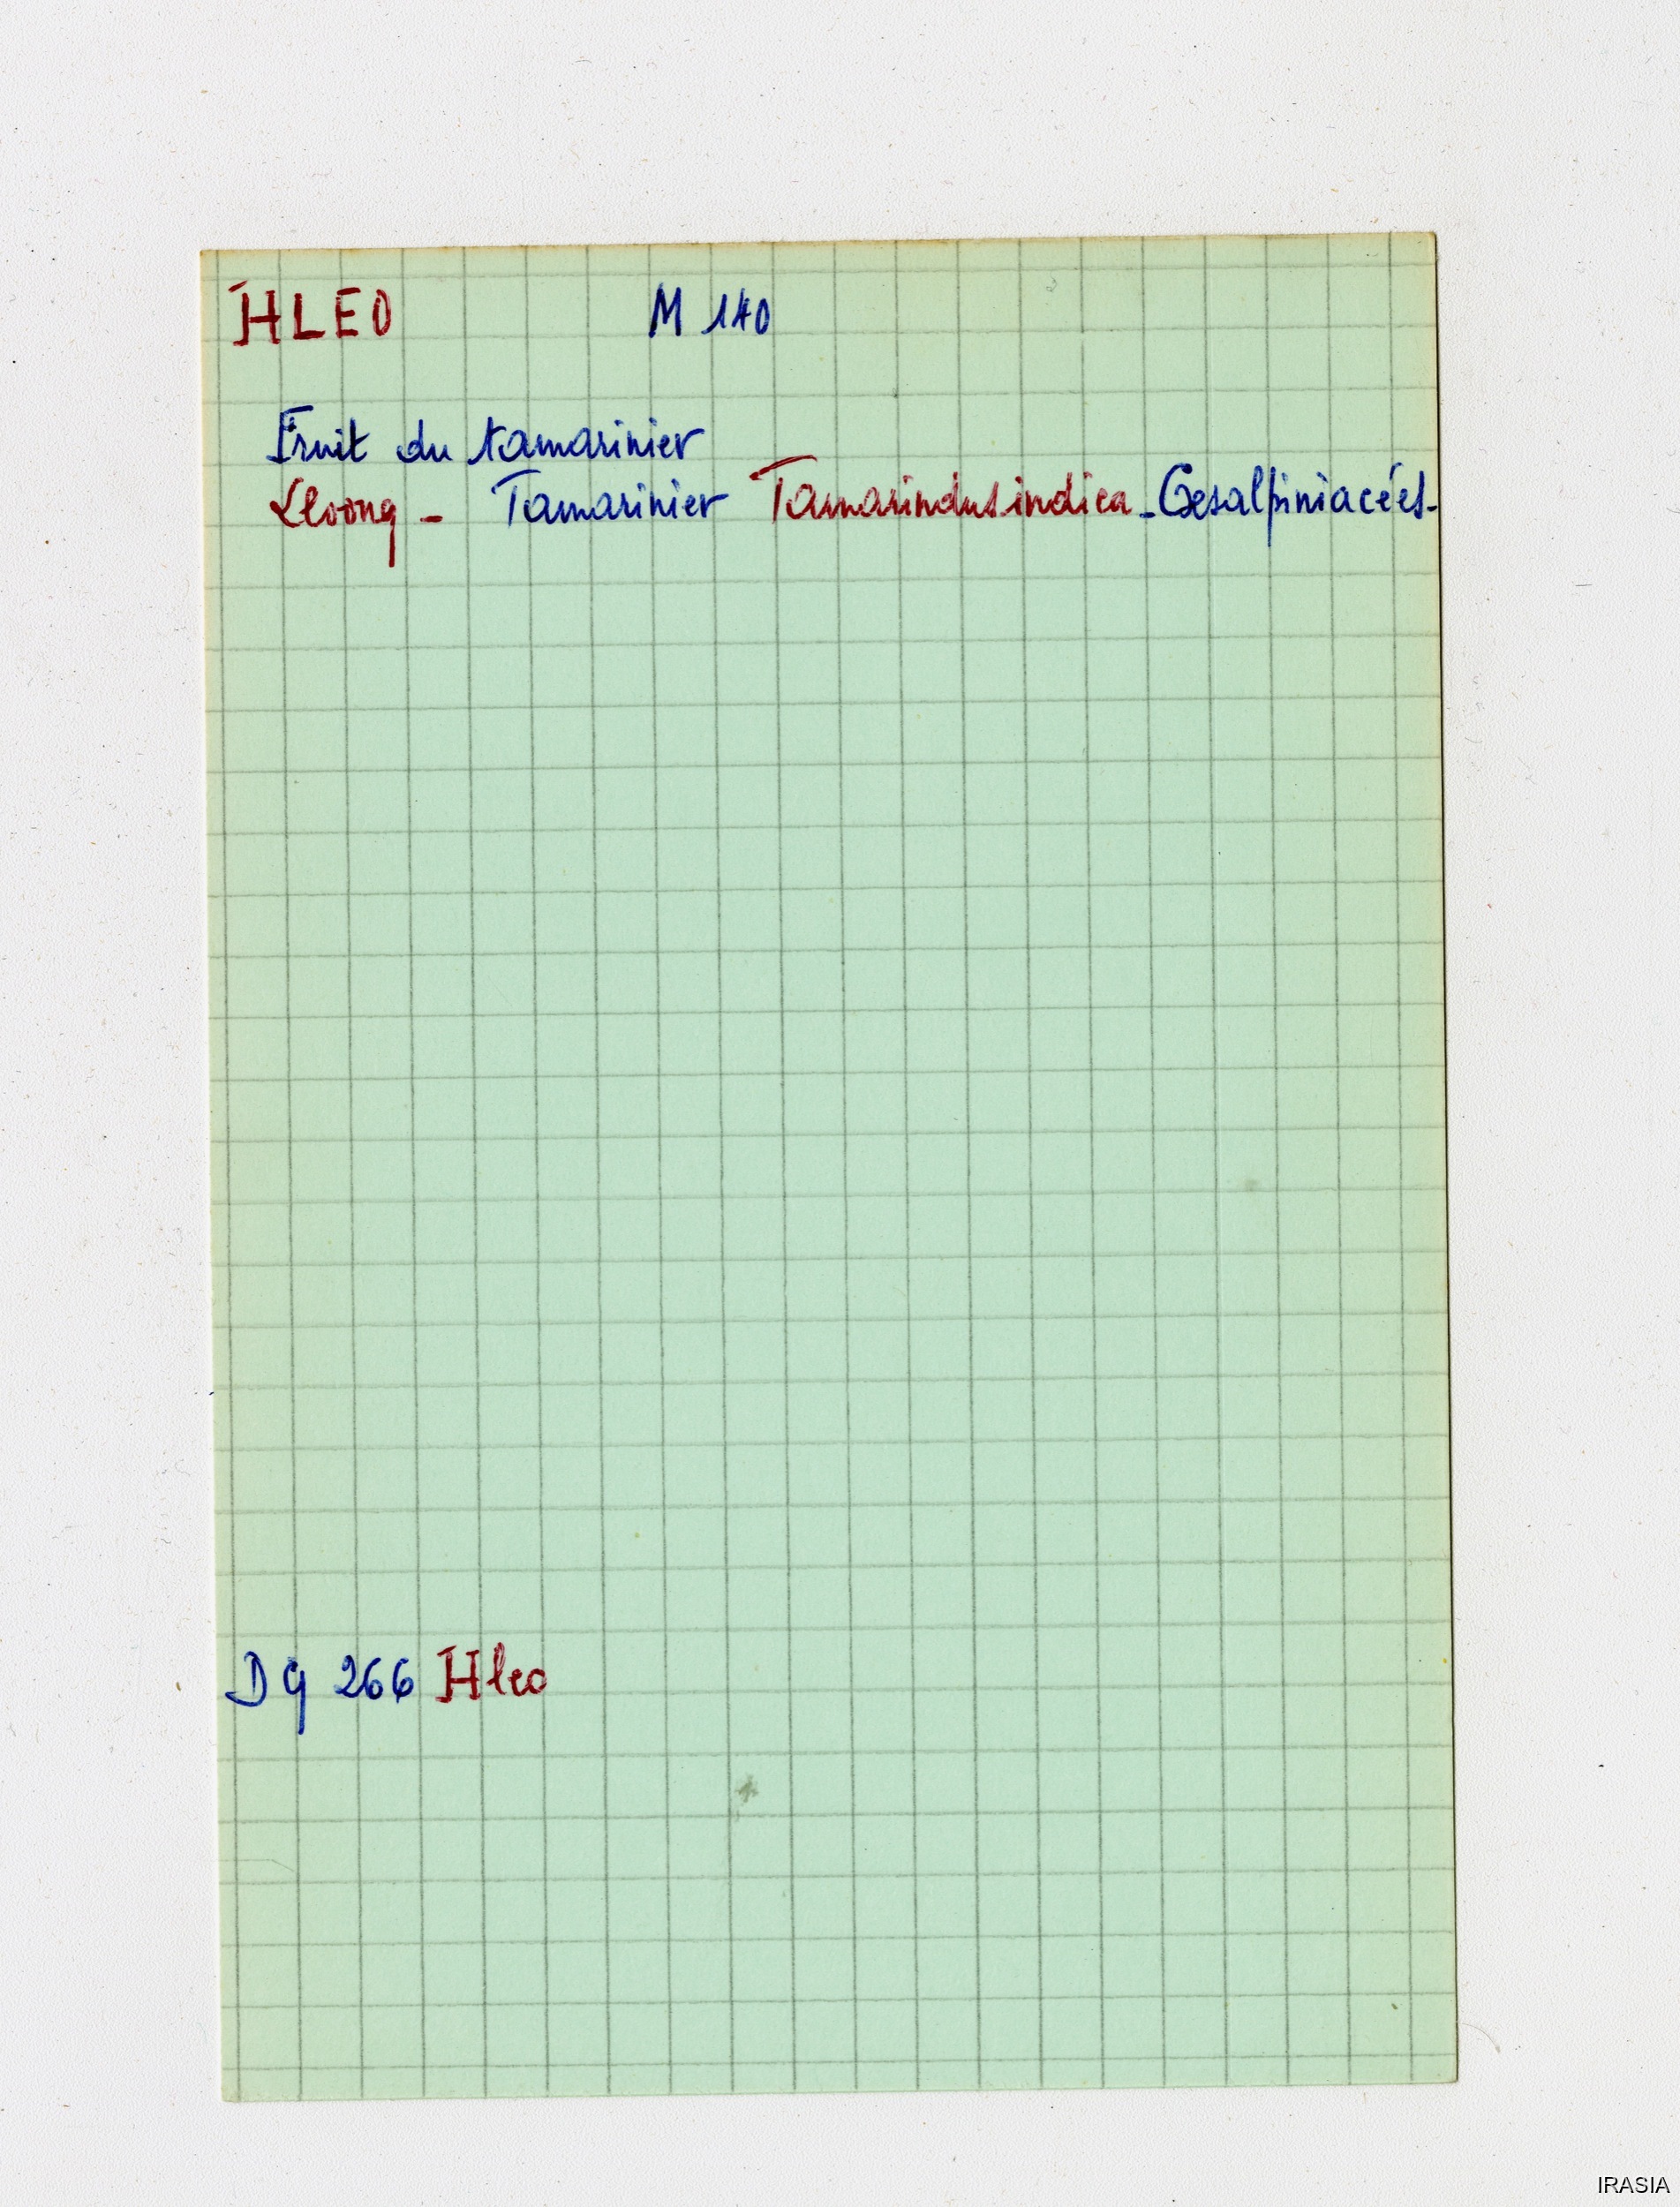 HLEO M 140
Fruit du tamarinier
- Tamarinier Tamarindus indica - Cesalpiniacées -
D9 266 Hleo
IRASIA